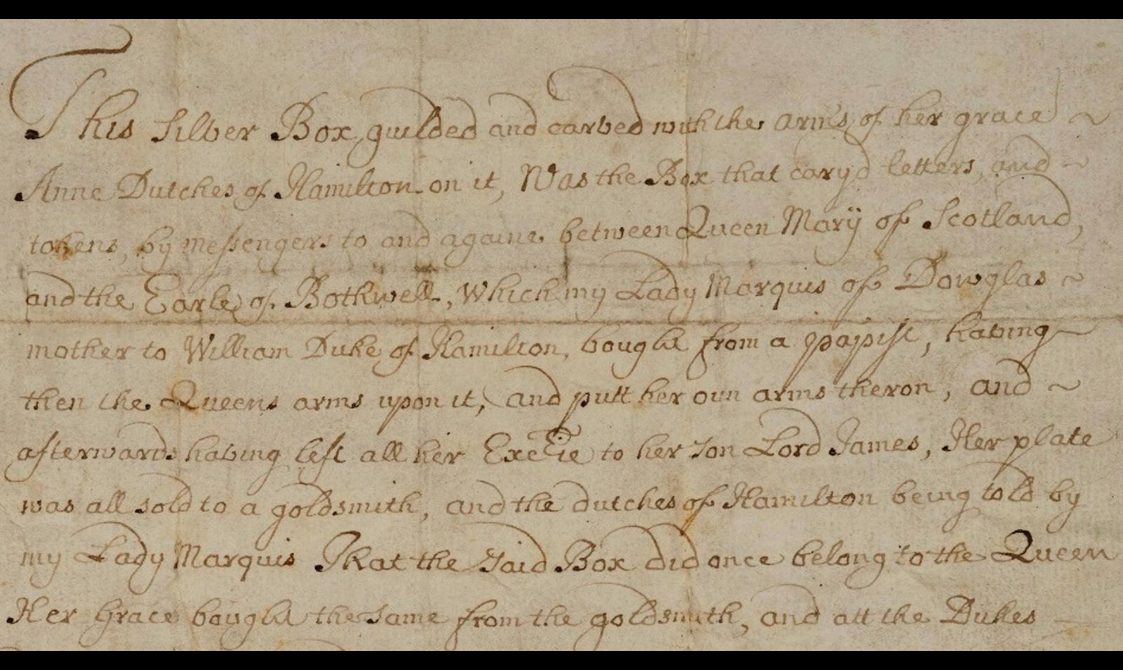 This silver Box guilded and carved with the arms of her grace ~
Anne Dutches of Hamilton on it, Was the Box that cary'd letters, and ~
tokens, by messengers to and againe between Queen Marÿ of Scotland,
and the Earle of Bothwell, Which my Lady Marquis of Dowglas ~
mother to William Duke of Hamilton, bought from a papist, having ~
then the Queens arms upon it, and putt her oun arms theron, and ~
afterwards having left all her to her son Lord James, Her plate
was all sold to a goldsmith, and the dutches of Hamilton being told by
my Lady Marquis That the said Box did once belong to the Queen
Her Grace bought the same from the goldsmith, and att the Dukes